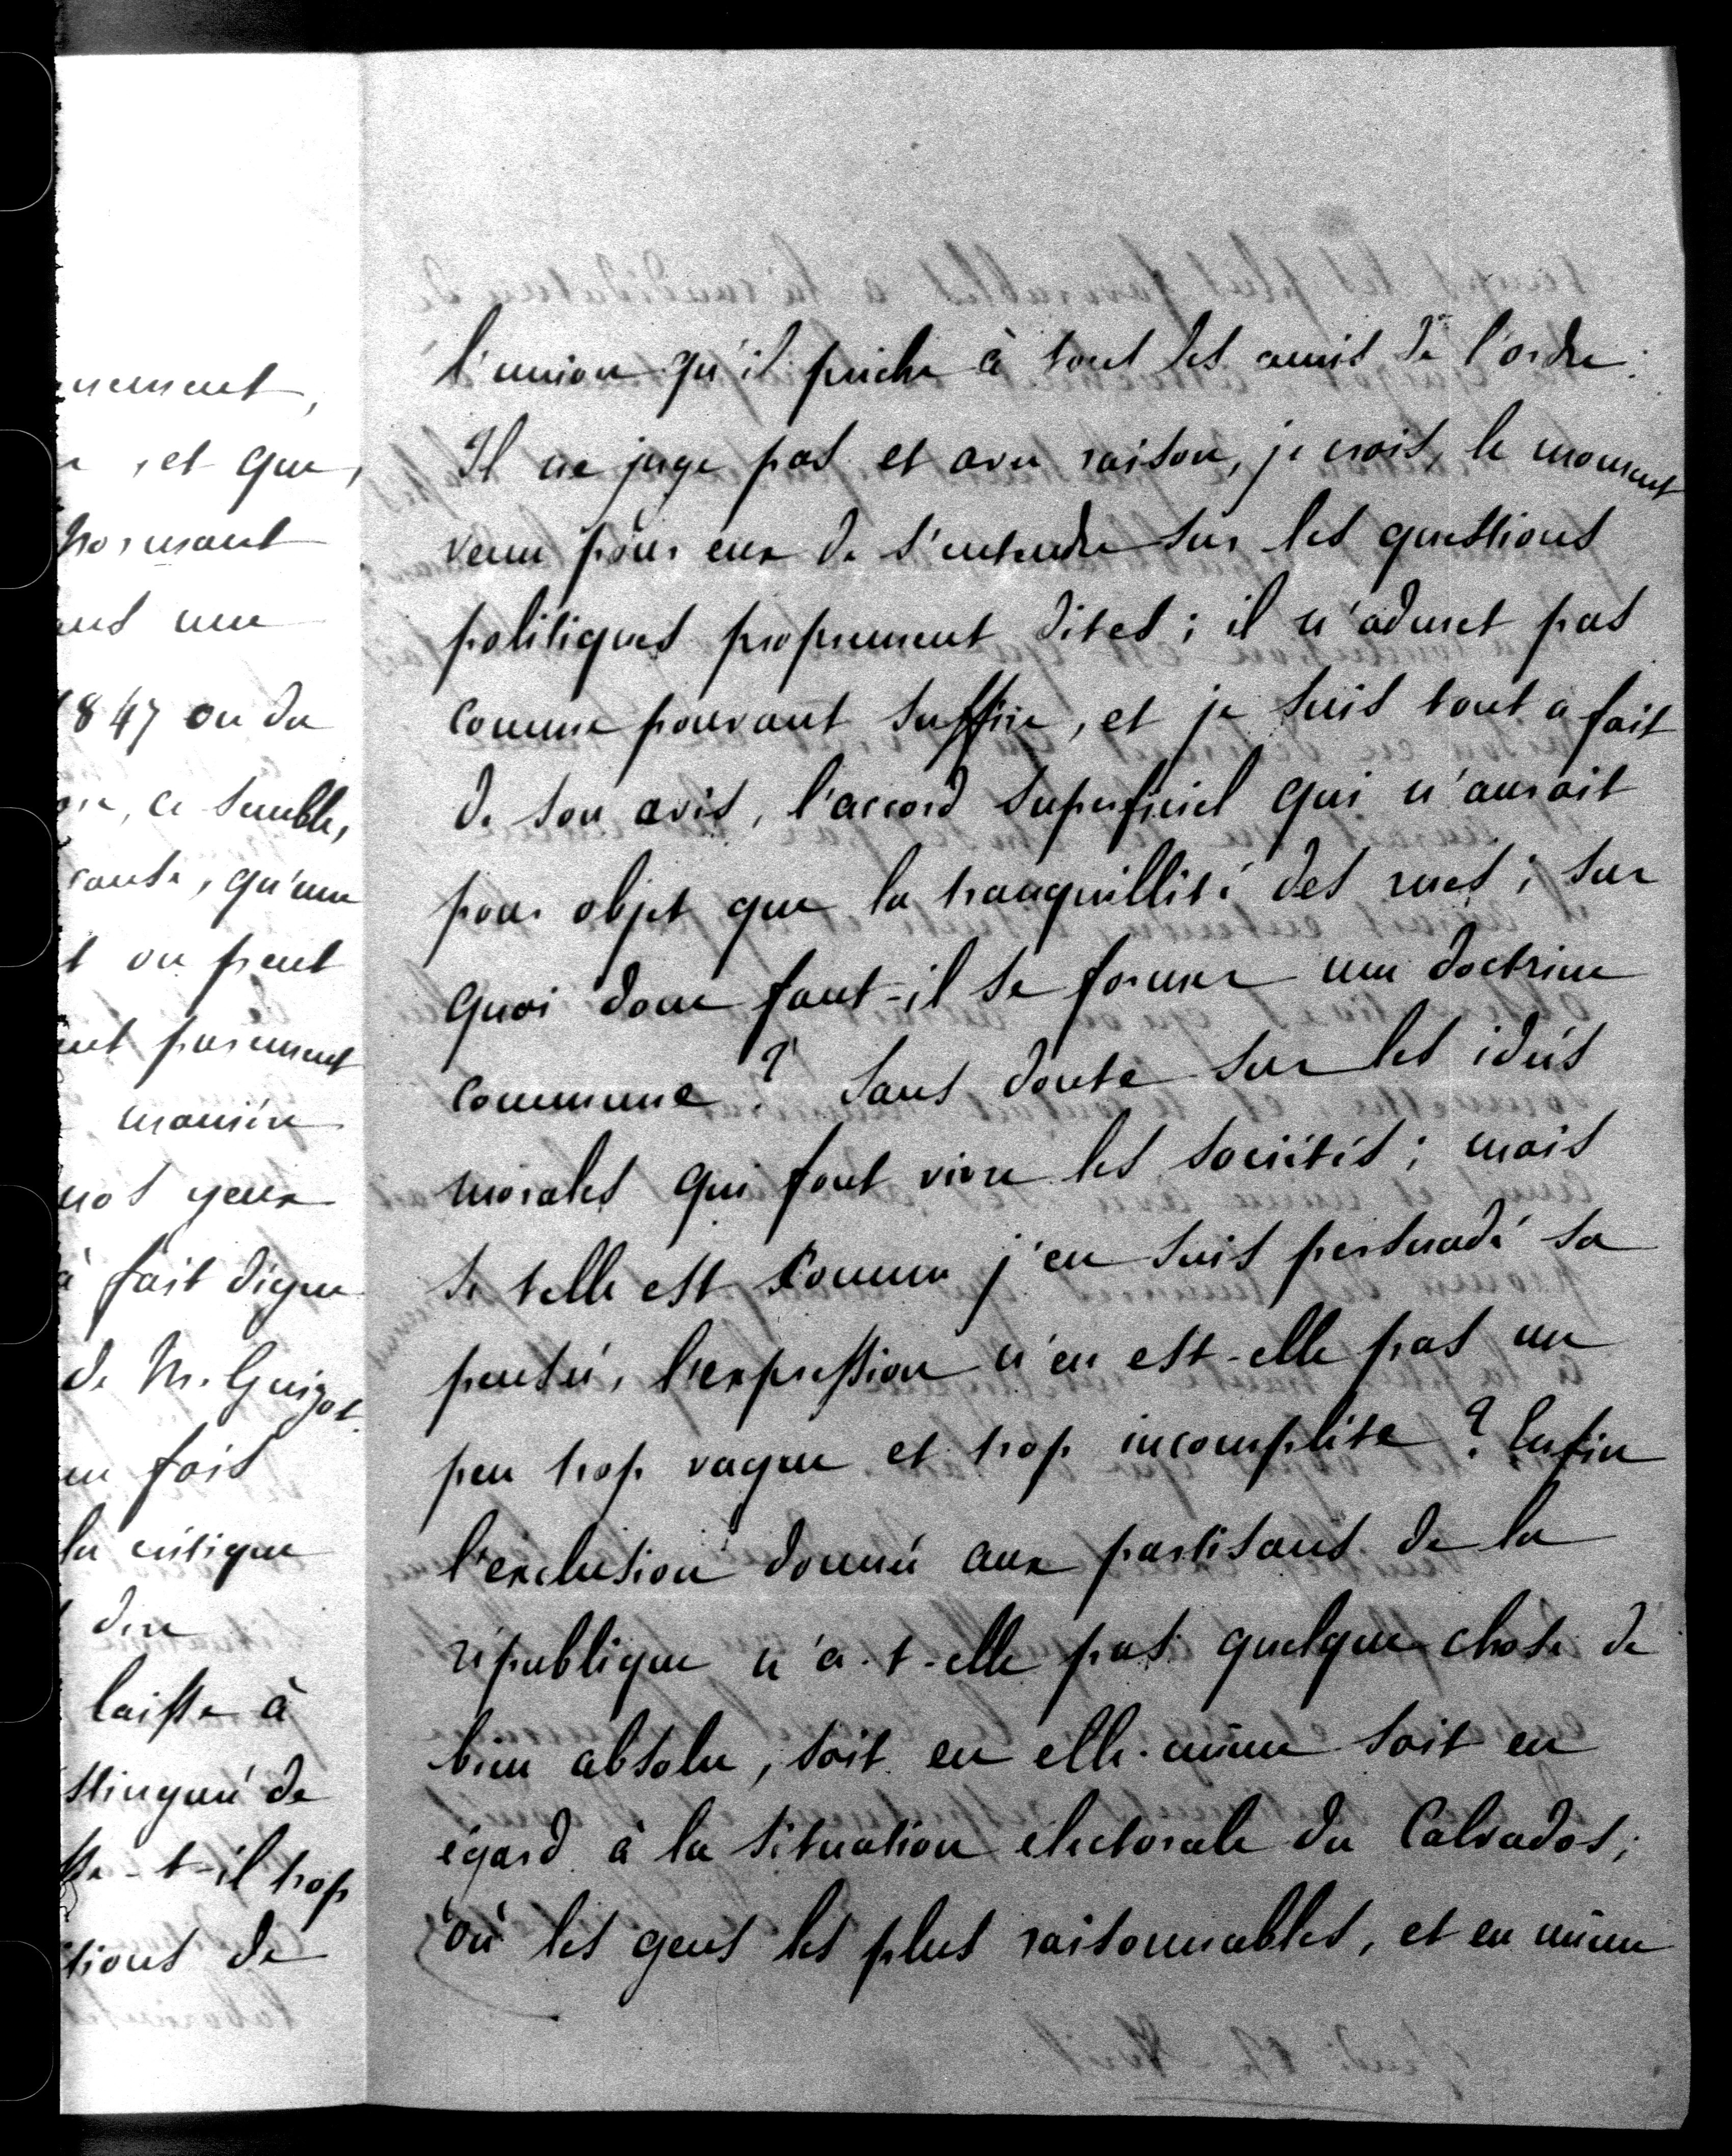 nement,
et que,
normant
une
1847 ou du
ce semble,
qu'une
t on peut
purement
manière
nos yeux
à fait digne
de M. Guizot.
en fais
la critique
dire
laisse à
stingué de
sse-t-il trop
tions de
l'union qu'il prêche à tous les amis de l'ordre.
Il ne juge pas et avec raison, je crois, le moment
venu pour eux de s'entendre sur les questions
politiques proprement dites ; il n'admet pas
comme pouvant suffire, et je suis tout à fait
de son avis, l'accord superficiel qui n'aurait
pour objet que la tranquillité des rues ; sur
quoi donc faut-il se former une doctrine
commune ? Sans doute sur les idées
morales qui font vivre les sociétés ; mais
si telle est comme j'en suis persuadé sa
pensée, l'expression n'en est-elle pas un
peu trop vague et trop incomplète ? Enfin
l'exclusion donnée aux partisans de la
république n'a-t-elle pas quelque chose de
bien absolu, soit en elle-même soit en
égard à la situation électorale du Calvados ;
où les gens les plus raisonnables, et en même